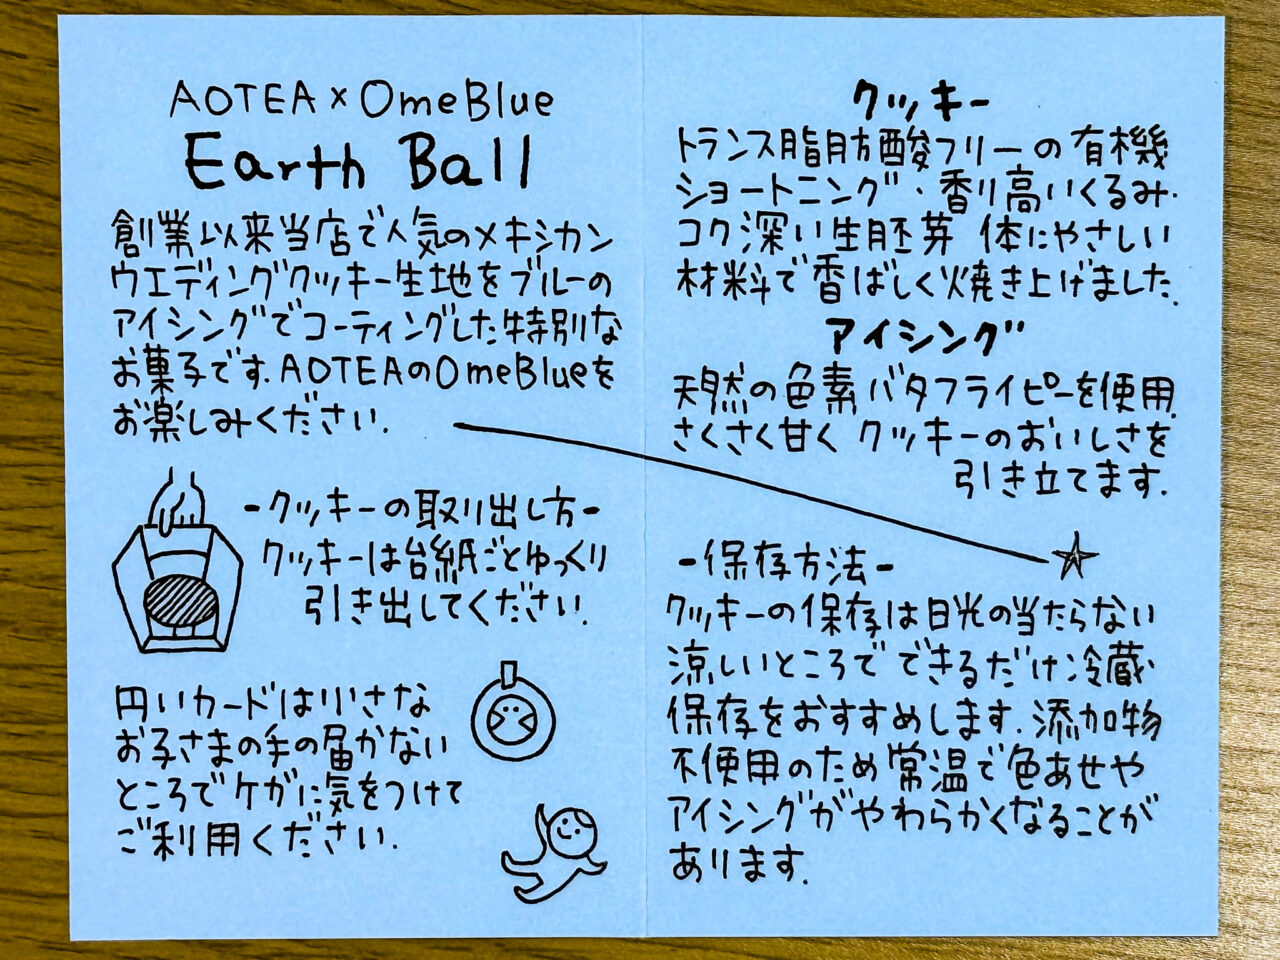 AOTEA × OmeBlue
Earth Ball
創業以来当店で人気のメキシカン
ウエディングクッキー生地をブルーの
アイシングでコーティングした特別な
お菓子です.AOTEAのOmeBlueを
お楽しみください.
-クッキーの取り出し方-
クッキーは台紙ごとゆっくり
引き出してください.
円いカードは小さな
お子さまの手の届かない
ところでケガに気をつけて
ご利用ください.
クッキー
トランス脂肪酸フリーの有機
ショートニング、香り高いくるみ.
コク深い生胚芽 体にやさしい
材料で香ばしく焼き上げました.
アイシング
天然の色素バタフライピーを使用.
さくさく甘く クッキーのおいしさを
引き立てます.
-保存方法-
クッキーの保存は日光の当たらない
涼しいところでできるだけ冷蔵
保存をおすすめします.添加物
不使用のため常温で色あせや
アイシングがやわらかくなることが
あります.